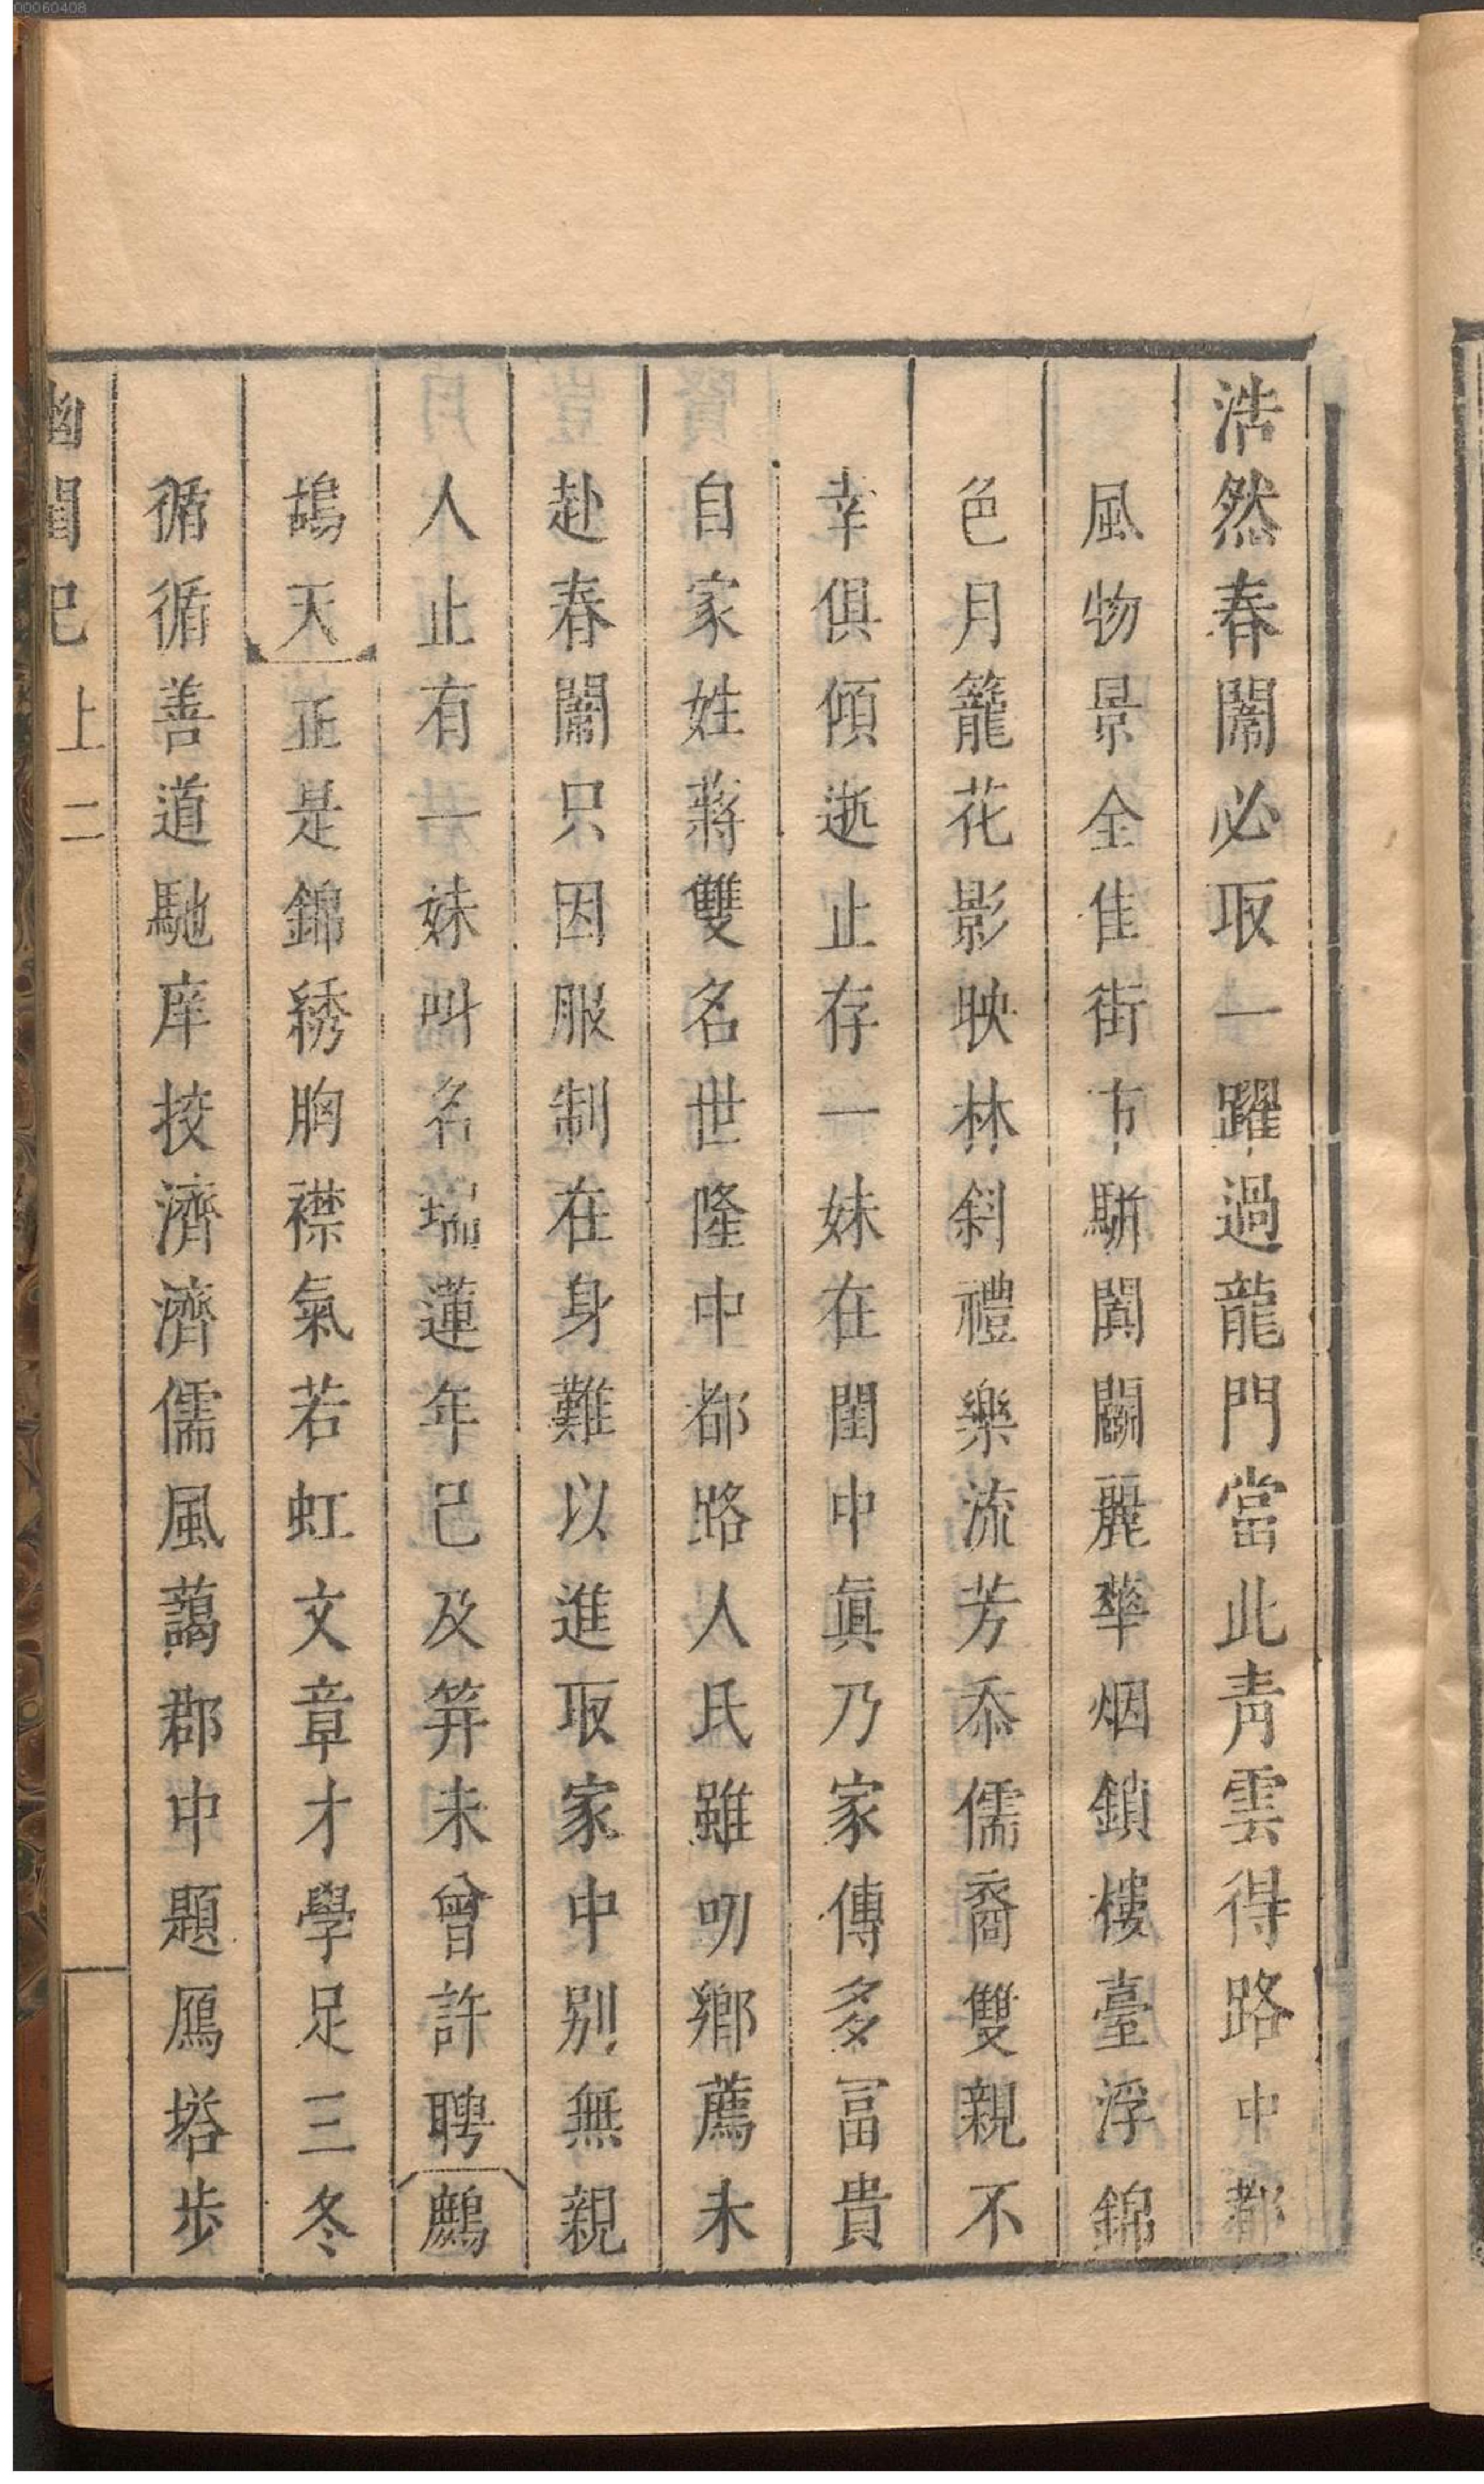 浩然春闈必取一躍過龍門當此靑雲得路中都
風物景全佳街市駢闐闤麗華烟鎖樓臺浮錦
色月籠花影映林斜禮樂流芳忝儒裔雙親不
幸俱傾逝止存一妹在閨中眞乃家傳多富貴
自家姓蔣雙名世隆中都路人氏雖叨鄉薦未
赴春闈只因服制在身難以進取家中別無親
人止有一妹叫名瑞蓮年已及笄未曾許聘鷓
鴣天正是錦綉胸襟氣若虹文章才學足三冬
循循善道馳庠挍濟濟儒風藹郡中題鴈塔步
幽閨記 上 二
00060408